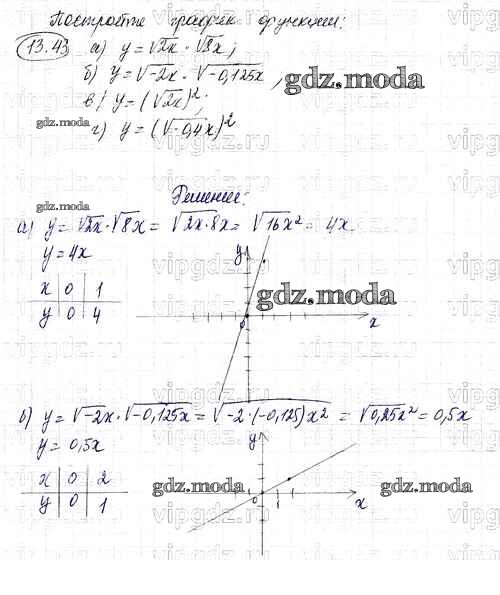 Постройте график функции:
13.43 а) y = √2x · √8x;
б) y = √-2x · √-0,125x;
gdz.moda
в) y = (√2x)²;
gdz.moda
г) y = (√-0,4x)²
gdz.moda
Решение:
а) y = √2x · √8x = √2x·8x = √16x² = 4x
y = 4x
x 0 1
y 0 4
y
gdz.moda
0
x
б) y = √-2x · √-0,125x = √-2·(-0,125)x² = √0,25x² = 0,5x
y = 0,5x
x 0 2
y 0 1
y
gdz.moda
gdz.moda
0
x
vipgdz.ru